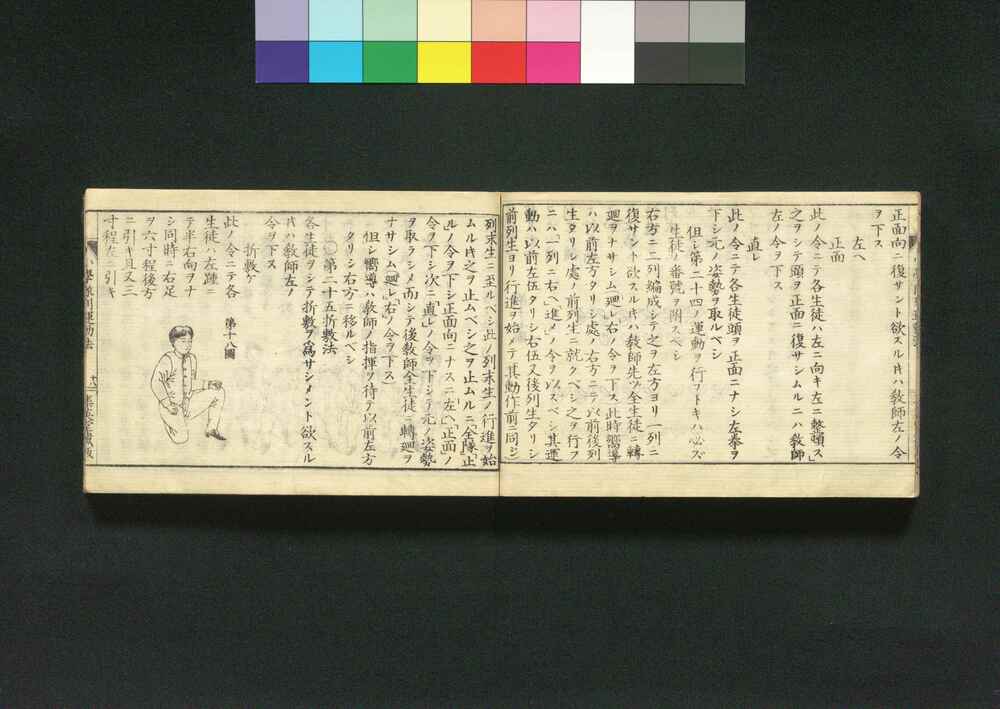 正面向ニ復サント欲スル𪜈ハ教師左ノ令
ヲ下ス
左ヘ
正面
此ノ令ニテ各生徒ハ左ニ向キ左ニ整頓ス」
之ヲシテ頭ヲ正面ニ復サシムルニハ教師
左ノ令ヲ下ス
直レ
此ノ令ニテ各生徒頭ヲ正面ニナシ左拳ヲ
下シ元ノ姿勢ヲ取ルベシ
但シ第二十四ノ運動ヲ行フトキハ必ズ
生徒ノ番號ヲ附スベシ
右方ニ二列編成シテ之ヲ左方ヨリ一列ニ
復サント欲スル𪜈ハ教師先ツ全生徒ニ轉
廻ヲナサシム廻レ「右」ノ令ヲ下ス此時嚮導
ハ以前左方タリシ處ノ右方ニテ以前後列
生タリシ處ノ前列生ニ就クベシ之ヲ行フ
ニハ「一列ニ右ヘ」進メ」ノ令ヲ以スベシ其運
動ハ以前左伍タリシ右伍又後列生タリシ
前列生ヨリ行進ヲ始メテ其動作前ニ同シ」
列末生ニ至ルベシ此ノ列末生ノ行進ヲ始
ムル𪜈之ヲ止ムベシ之ヲ止ムルニ「全隊」止
レ」ノ令ヲ下シ正面向ニナスニ「左ヘ」正面」ノ
令ヲ下シ次ニ「直レ」ノ令ヲ下シテ元ノ姿勢
ヲ取ラシメ而シテ後教師全生徒ニ轉廻ヲ
ナサシム廻レ「右」ノ令ヲ下ス」
但シ嚮導ハ教師ノ指揮ヲ待テ以前左方
タリシ右方ニ移ルベシ
○第二十五折敷法
各生徒ヲシテ折敷ヲ爲サシメント欲スル
𪜈ハ教師左ノ
令ヲ下ス
折敷ケ
此ノ令ニテ各
生徒ハ左踵ニ
テ半右向ヲナ
シ同時ニ右足
ヲ六寸程後方
ニ引キ且又三
寸程左ヘ引キ
第十八圖